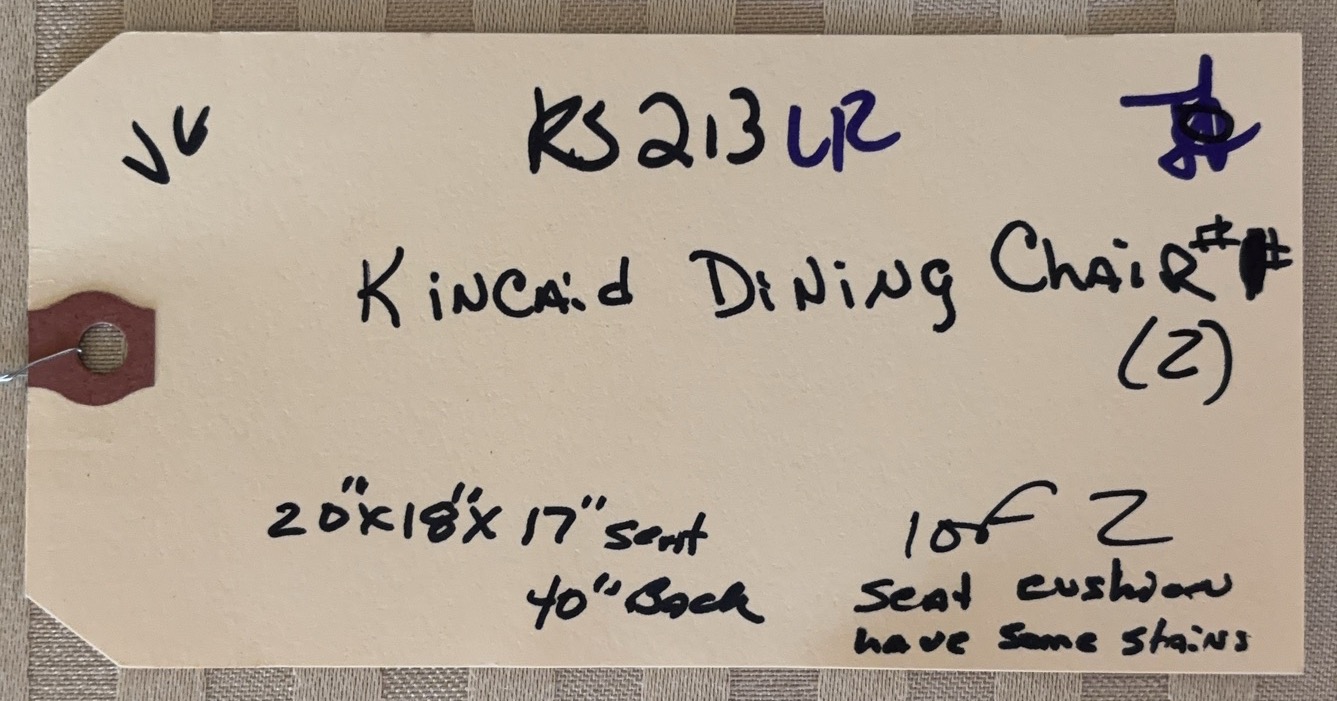 VG RS213 LR
KiNCAid DiNiNg ChAiR #
(2)
20" x 18" x 17" seat
40" Back
1 of 2
seat cushion
have some stains